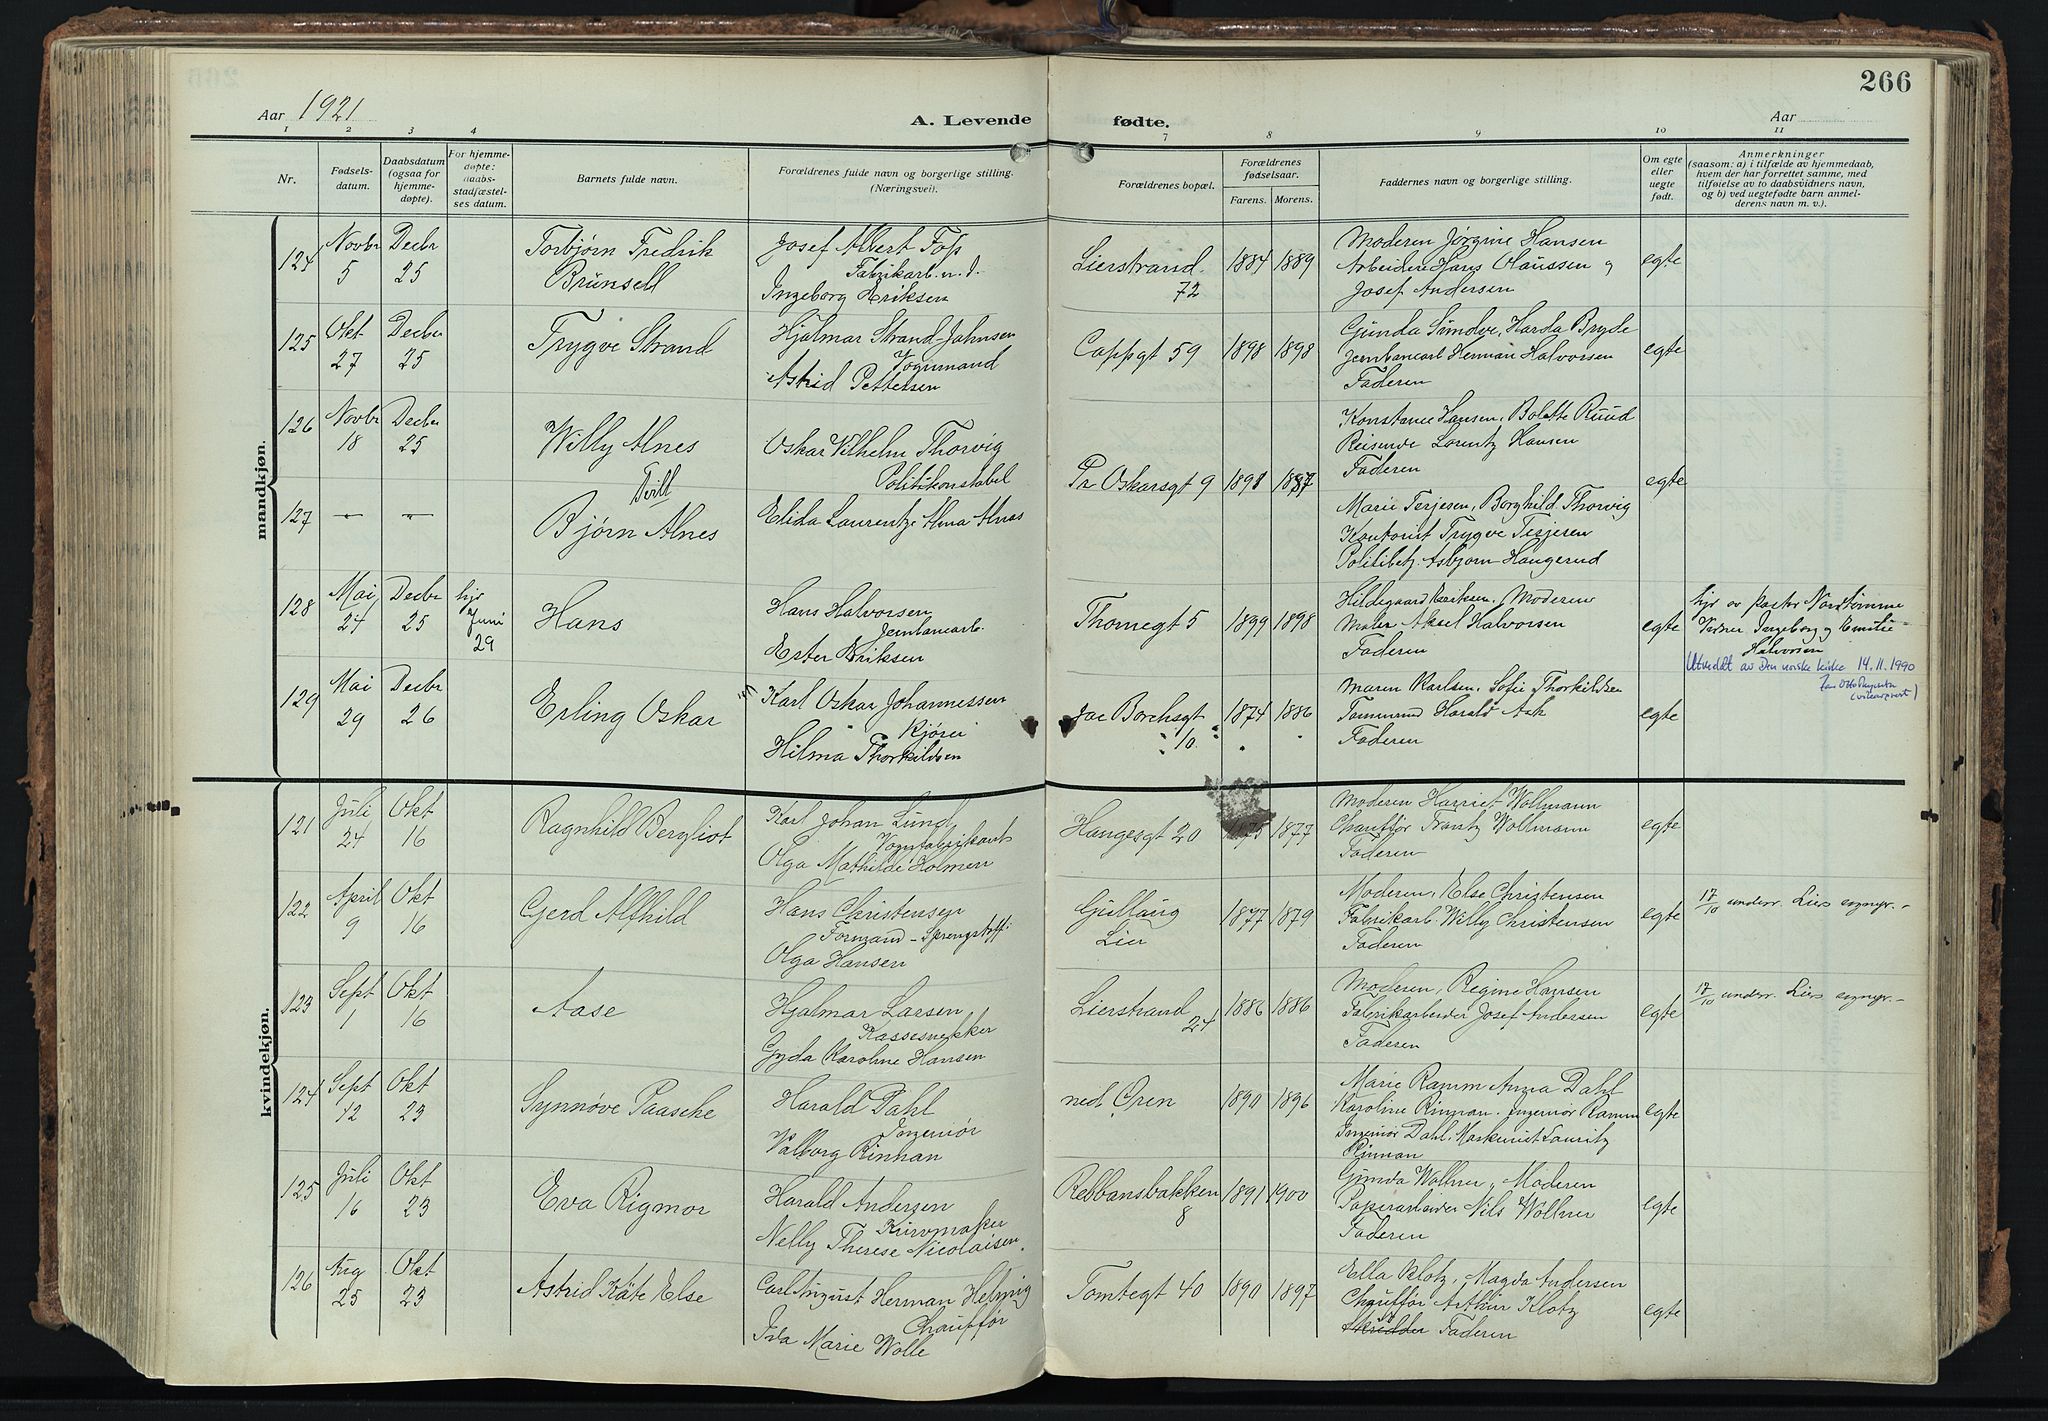 266
Aar 1921
A. Levende fødte.
Aar
1 2 3 4 7 8 9 10 11
Nr.
Fødsels-
datum.
Daabsdatum
(ogsaa for
hjemme-
døpte).
For hjemme-
døpte:
daabs-
stadfæstel-
ses datum.
Barnets fulde navn.
Forældrenes fulde navn og borgerlige stilling.
(Næringsvei).
Forældrenes bopæl.
Forældrenes
fødselsaar.
Farens. Morens.
Faddernes navn og borgerlige stilling.
Om egte
eller
uegte
født.
Anmerkninger
(saasom: a) i tilfælde av hjemmedaab,
hvem der har forrettet samme, med
tilføielse av to daabsvidners navn,
og b) ved uegtefødte barn anmel-
derens navn m. v.).
mandkjøn.
124
Novbr
5
Decbr
25
Torbjørn Fredrik
Brünsell
Josef Albert Foss
Fabrikarb.
Ingeborg Eriksen
Lierstrand
72
1884 1889
Moderen Jørgine Hansen
Arbeidere Hans Olaussen og
Josef Andersen
egte
125
Okt
27
Decbr
25
Trygve Strand
Hjalmar Strand-Johnsen
Vognmand
Astrid Pettersen
Cappgt 59
1898 1898
Gunda Sundve, Harda Bryde
Jernbanearb Herman Halvorsen
Faderen
egte
126
Novbr
18
Decbr
25
Willy Alnes
Tvill
Oskar Vilhelm Thorvig
Politikonstabel
Pr Oskarsgt 9
1891 1887
Konstance Hansen, Bolette Ruud
Reisende Lorentz Hansen
Faderen
egte
127
— —
Bjørn Alnes
Elida Laurentze Alma Alnæs
Marie Terjesen, Borghild Thorvig
Kontorist Trygve Terjesen
Politibetj. Asbjørn Haugerud
128
Mai
24
Decbr
25
hjd
Juni
29
Hans
Hans Halvorsen
Jernbanearb.
Ester Eriksen
Thornegt 5
1899 1898
Hildegaard Eriksen, Moderen
Maler Aksel Halvorsen
Faderen
egte
hjd av pastor Nordtømme
Vidner Ingeborg og Emilie
Halvorsen
Utmeldt av Den norske kirke 14.11.1990
129
Mai
29
Decbr
26
Erling Oskar
Karl Oskar Johannessen
Kjører
Hilma Thorkildsen
Jac Borchsgt
10.
1874 1886
Maren Karlsen, Sofie Thorkildsen
Tømmermd Harald Ask
Faderen
egte
kvindekjøn.
121
Juli
24
Okt
16
Ragnhild Bergliot
Karl Johan Lund
Vognfabrikant
Olga Mathilde Holmen
Haugesgt 20
1877
Moderen Harriet Wollmann
Chauffør Frantz Wollmann
Faderen
egte
122
April
9
Okt
16
Gerd Alfhild
Hans Christensen
Formand - Sprengstoff
Olga Hansen
Gullaug
Lier
1877 1879
Moderen, Else Christensen
Fabrikarb. Willy Christensen
Faderen
egte
17/10 underr. Liers sognepr.
123
Sept
1
Okt
16
Aase
Hjalmar Larsen
Kassesnekker
Gyda Karoline Hansen
Lierstrand
24
1886 1886
Moderen, Regine Hansen
Fabrikarbeider Josef Andersen
Faderen
egte
17/10 underr. Liers sognepr.
124
Sept
12
Okt
23
Synnøve Paasche
Harald Dahl
Ingeniør
Valborg Rinnan
ned. Øren
1890 1896
Marie Ramm Anna Dahl
Karoline Rinnan. Ingeniør Ramm
Ingeniør Dahl. Maskinist Lauritz
Rinnan
egte
125
Juli
16
Okt
23
Eva Rigmor
Harald Andersen
Kurvmaker
Nelly Therese Nicolaisen
Rebbansbakken
8
1891 1900
Gunda Wollner, Moderen
Papirarbeider Nils Wollner
Faderen
egte
126
Aug
25
Okt
23
Astrid Käte Else
Carl August Herman Helmig
Chauffør
Ida Marie Wolle
Tomtegt 40
1890 1897
Ella Klotz, Magda Andersen
Chauffør Arthur Klotz
Faderen
egte